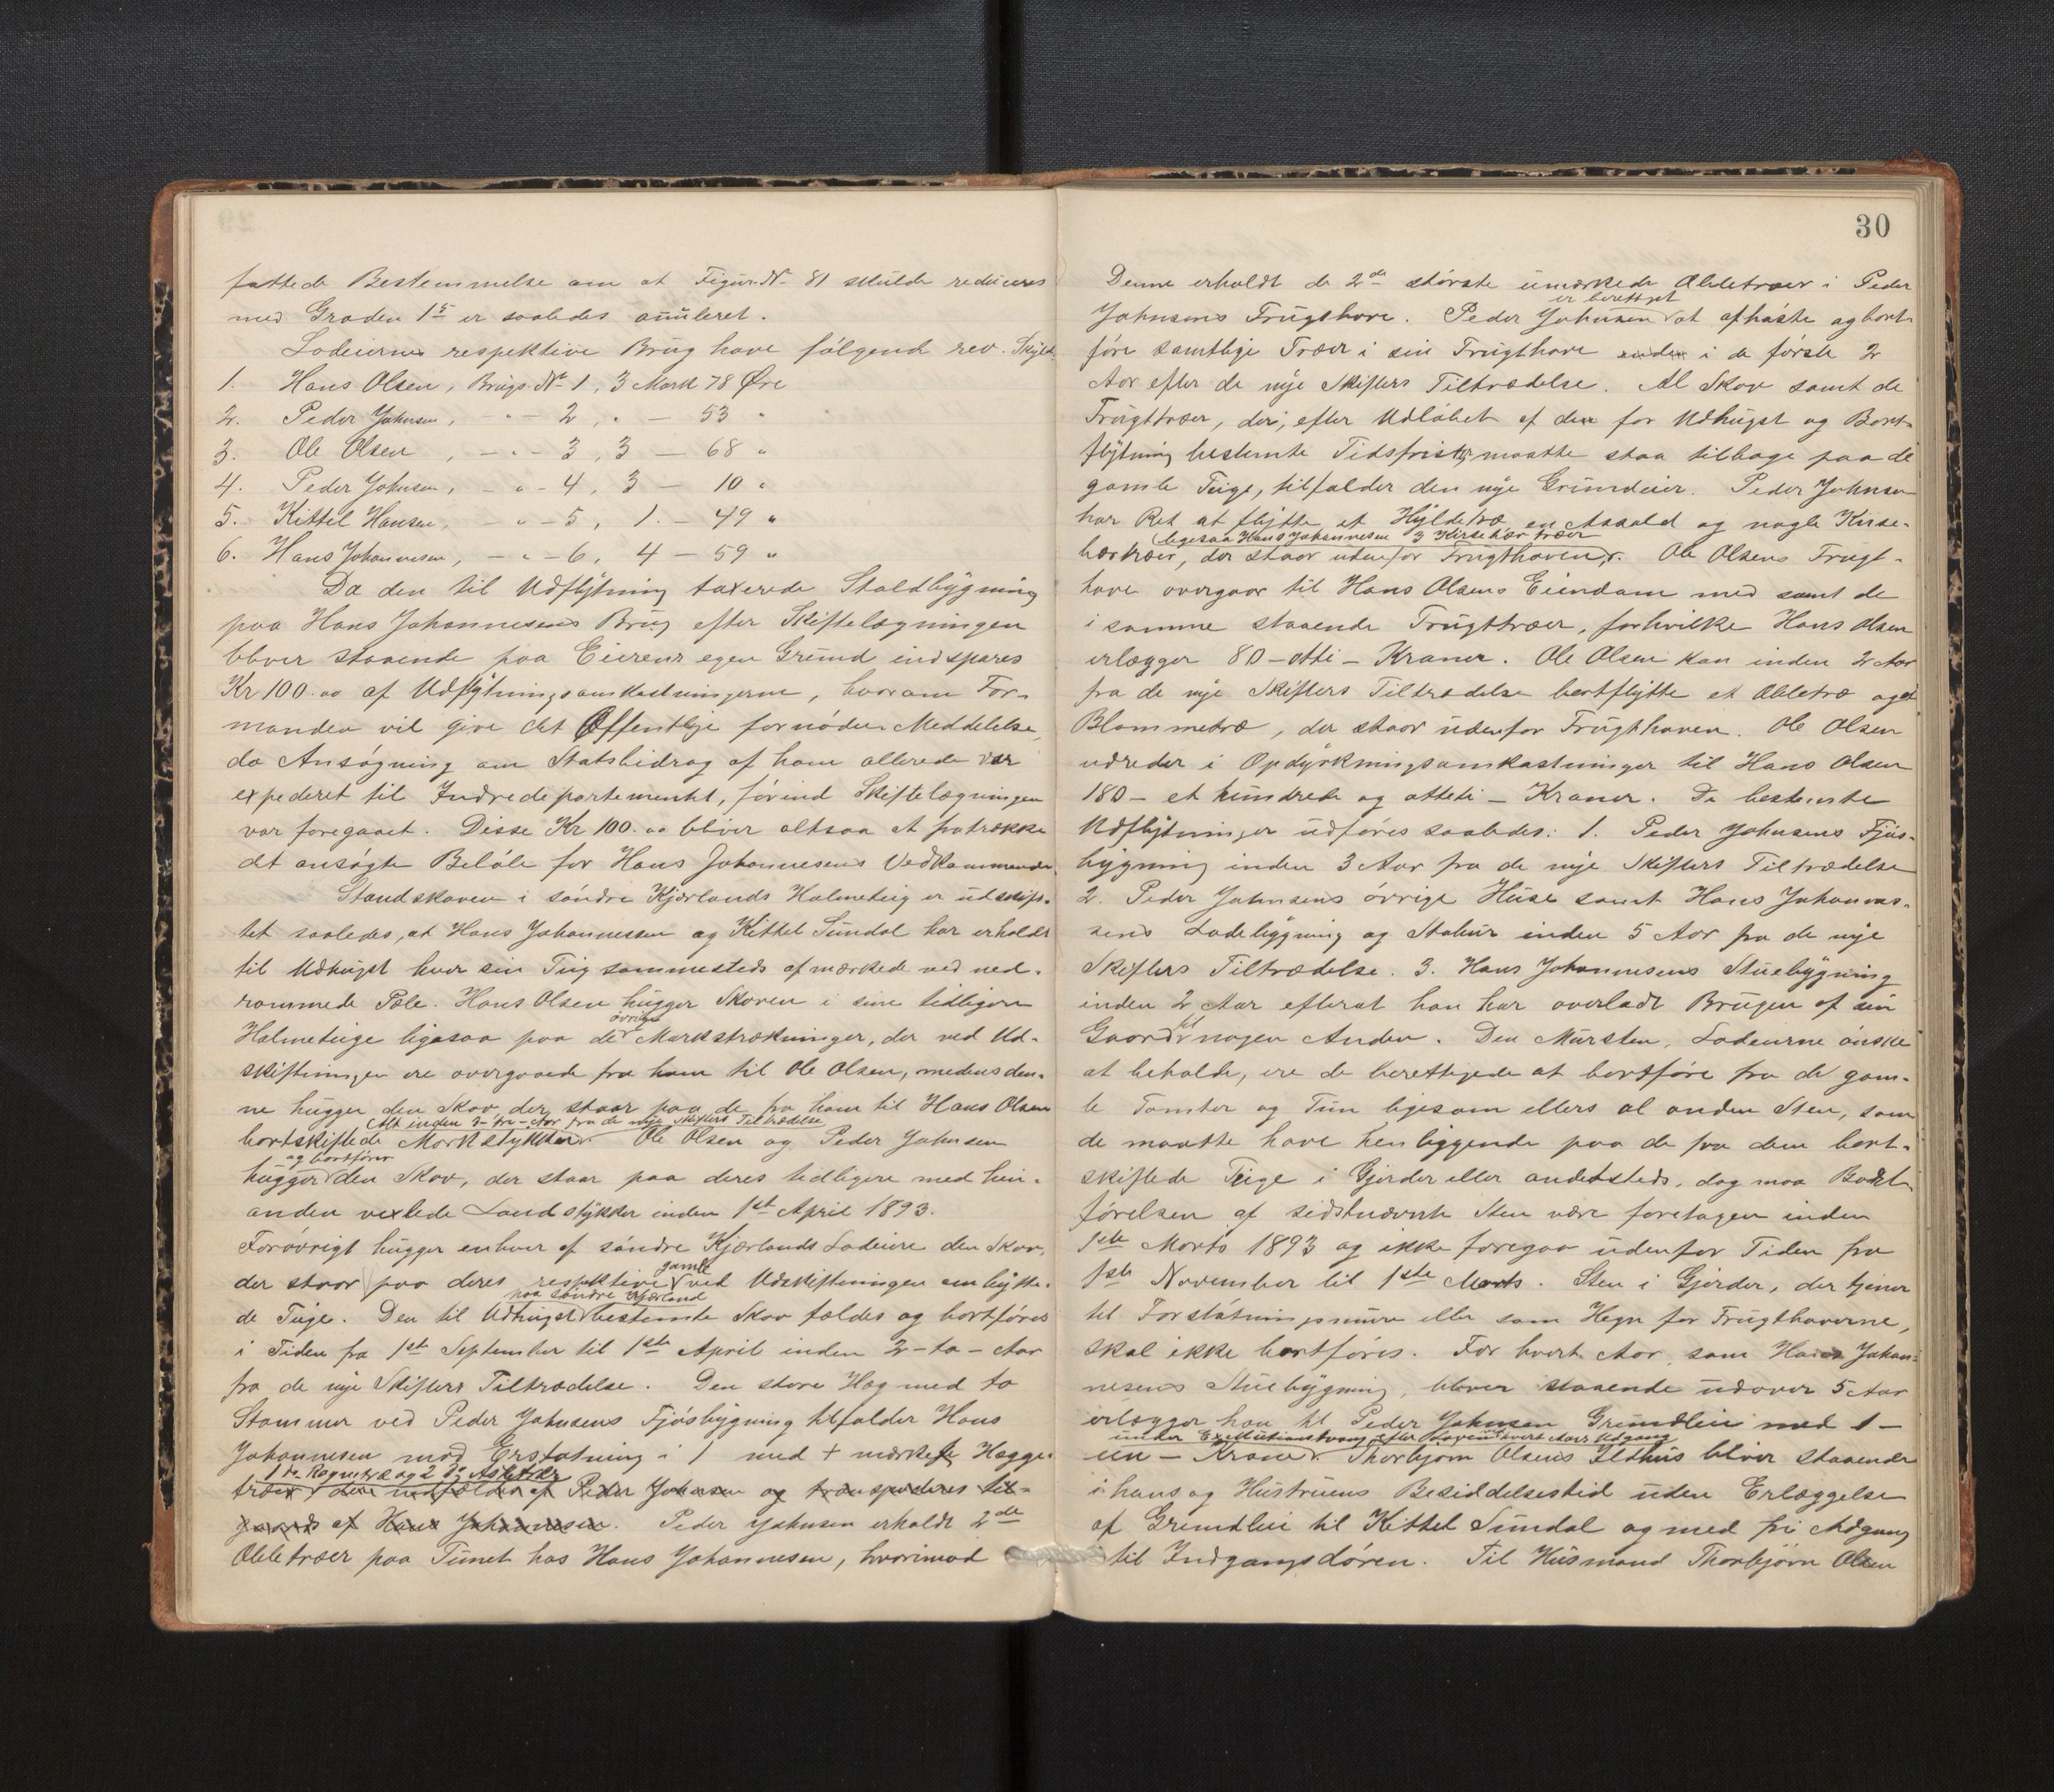 fattede Bestemmelse om at Figur No 81 skulde reduceres
med Graden 15 er saaledes anuleret.
Lodeiernes respektive Brug have følgende rev. Skyld.
1. Hans Olsen, Brugs-No 1, 3 Mark 78 Øre
2. Peder Johnsen, - " - 2, " - 53 "
3. Ole Olsen, - " - 3, 3 - 68 "
4. Peder Johnsen, - " - 4, 3 - 10 "
5. Kittel Hansen, - " - 5, 1 - 49 "
6. Hans Johannesen, - " - 6, 4 - 59 "
Da den til Udflytning taxerede Staldbygning
paa Hans Johannesens Brug efter Skiftelægningen
bliver staaende paa Eierens egen Grund indspares
Kr 100.00 af Udflytningsomkostningerne, hvorom For-
manden vil give det Offentlige fornøden Meddelelse,
da Ansøgning om Statsbidrag af ham allerede var
expederet til Indredepartementet, førend Skiftelægningen
var foregaaet. Disse Kr 100.00 bliver altsaa at fratrække
det ansøgte Beløb for Hans Johannesens Vedkommende.
Standskoven i søndre Kjærlands Holmeteig er udskif-
tet saaledes, at Hans Johannesen og Kittel Sundal har erholdt
til Udhugst hver sin Teig sammesteds afmærkede ved ned-
rammede Pæle. Hans Olsen hugger Skoven i sine tidligere
øvrige
Holmeteige ligesaa paa de Markstrækninger, der ved Ud-
skiftningen ere overgaaede fra ham til Ole Olsen, medens den-
ne hugger den Skov, der staar paa de fra ham til Hans Olsen
Alt inden 3-tre-Aar fra de nye Skifters Tiltrædelse
bortskiftede Markstykker. Ole Olsen og Peder Johnsen
og bortfører
hugger den Skov, der staar paa deres tidligere med hin-
anden vexlede Landstykker inden 1st April 1893.
Forøvrigt hugger enhver af søndre Kjærlands Lodeiere den Skov,
gamle
der staar paa deres respektive ved Udskiftningen ombytte-
paa søndre Kjærland
de Teige. Den til Udhugst bestemte Skov fældes og bortføres
i Tiden fra 1st September til 1ste April inden 2-to-Aar
fra de nye Skifters Tiltrædelse. Den store Hæg med to
Stammer ved Peder Johnsens Fjøsbygning tilfalder Hans
Johannesen mod Erstatning i 1 med + mærket Hægge-
træer, den nedfældes af Peder Johnsen og transporteres til-
gaards af Hans Johannesen. Peder Johnsen erholdt 2de
Æbletræer paa Tunet hos Hans Johannesen, hvorimod
30
Denne erholdt de 2de største umærkede Æbletræer i Peder
er berettiget
Johnsens Frugthave. Peder Johnsen at afhøste og bort-
føre samtlige Træer i sin Frugthave inden i de første 2
Aar efter de nye Skifters Tiltrædelse. Al Skov samt de
Frugttræer, der, efter Udløbet af den for Udhugst og Bort-
flytning bestemte Tidsfrist, maatte staa tilbage paa de
gamle Teige, tilfalder den nye Grundeier. Peder Johnsen
har Ret at flytte et Hyldetræ, en Asald og nogle Kirse-
ligesaa Hans Johannesen 3 Kirsebær træer
bærtræer, der staar udenfor Frugthaven. Ole Olsens Frugt-
have overgaar til Hans Olsens Eiendom med samt de
i samme staaende Frugttræer, forhvilke Hans Olsen
erlægger 80-otti-Kroner. Ole Olsen kan inden 2 Aar
fra de nye Skifters Tiltrædelse bortflytte et Æbletræ og et
Blommetræ, der staar udenfor Frugthaven. Ole Olsen
udreder i Opdyrkningsomkostninger til Hans Olsen
180- et hundrede og otteti - Kroner. De bestemte
Udflytninger udføres saaledes: 1. Peder Johnsens Fjøs-
bygning inden 3 Aar fra de nye Skifters Tiltrædelse
2. Peder Johnsens øvrige Huse samt Hans Johannes-
sens Ladebygning og Stabur inden 5 Aar fra de nye
Skifters Tiltrædelse. 3. Hans Johannesens Stuebygning
inden 2 Aar efterat han har overladt Brugen af sin
til
Gaard nogen Anden. Den Mursten, Lodeierne ønske
at beholde, ere de berettigede at bortføre fra de gam-
le Tomter og Tun ligesom ellers al anden Sten, som
de maatte have henliggende paa de fra dem bort-
skiftede Teige i Gjerder eller andetsteds, dog maa Bort-
førelsen af sidstnævnte Sten være foretagen inden
1ste Marts 1893 og ikke foregaa udenfor Tiden fra
1ste November til 1ste Marts. Sten i Gjerder, der tjener
til Forstøtningsmure eller som Hegn for Frugthaverne,
skal ikke bortføres. For hvert Aar, som Hans Johan-
nesens Stuebygning, bliver staaende udover 5 Aar
erlægger han til Peder Johnsen Grundleie med 1-
under Exekutionstvang efter Loven hvert Aars Udgang
een - Krone. Thorbjørn Olsens Ildhus bliver staaende
i hans og Hustruens Besiddelsestid uden Erlæggelse
af Grundleie til Kittel Sundal og med fri Adgang
til Indgangsdøren. Til Husmand Thorbjørn Olsen